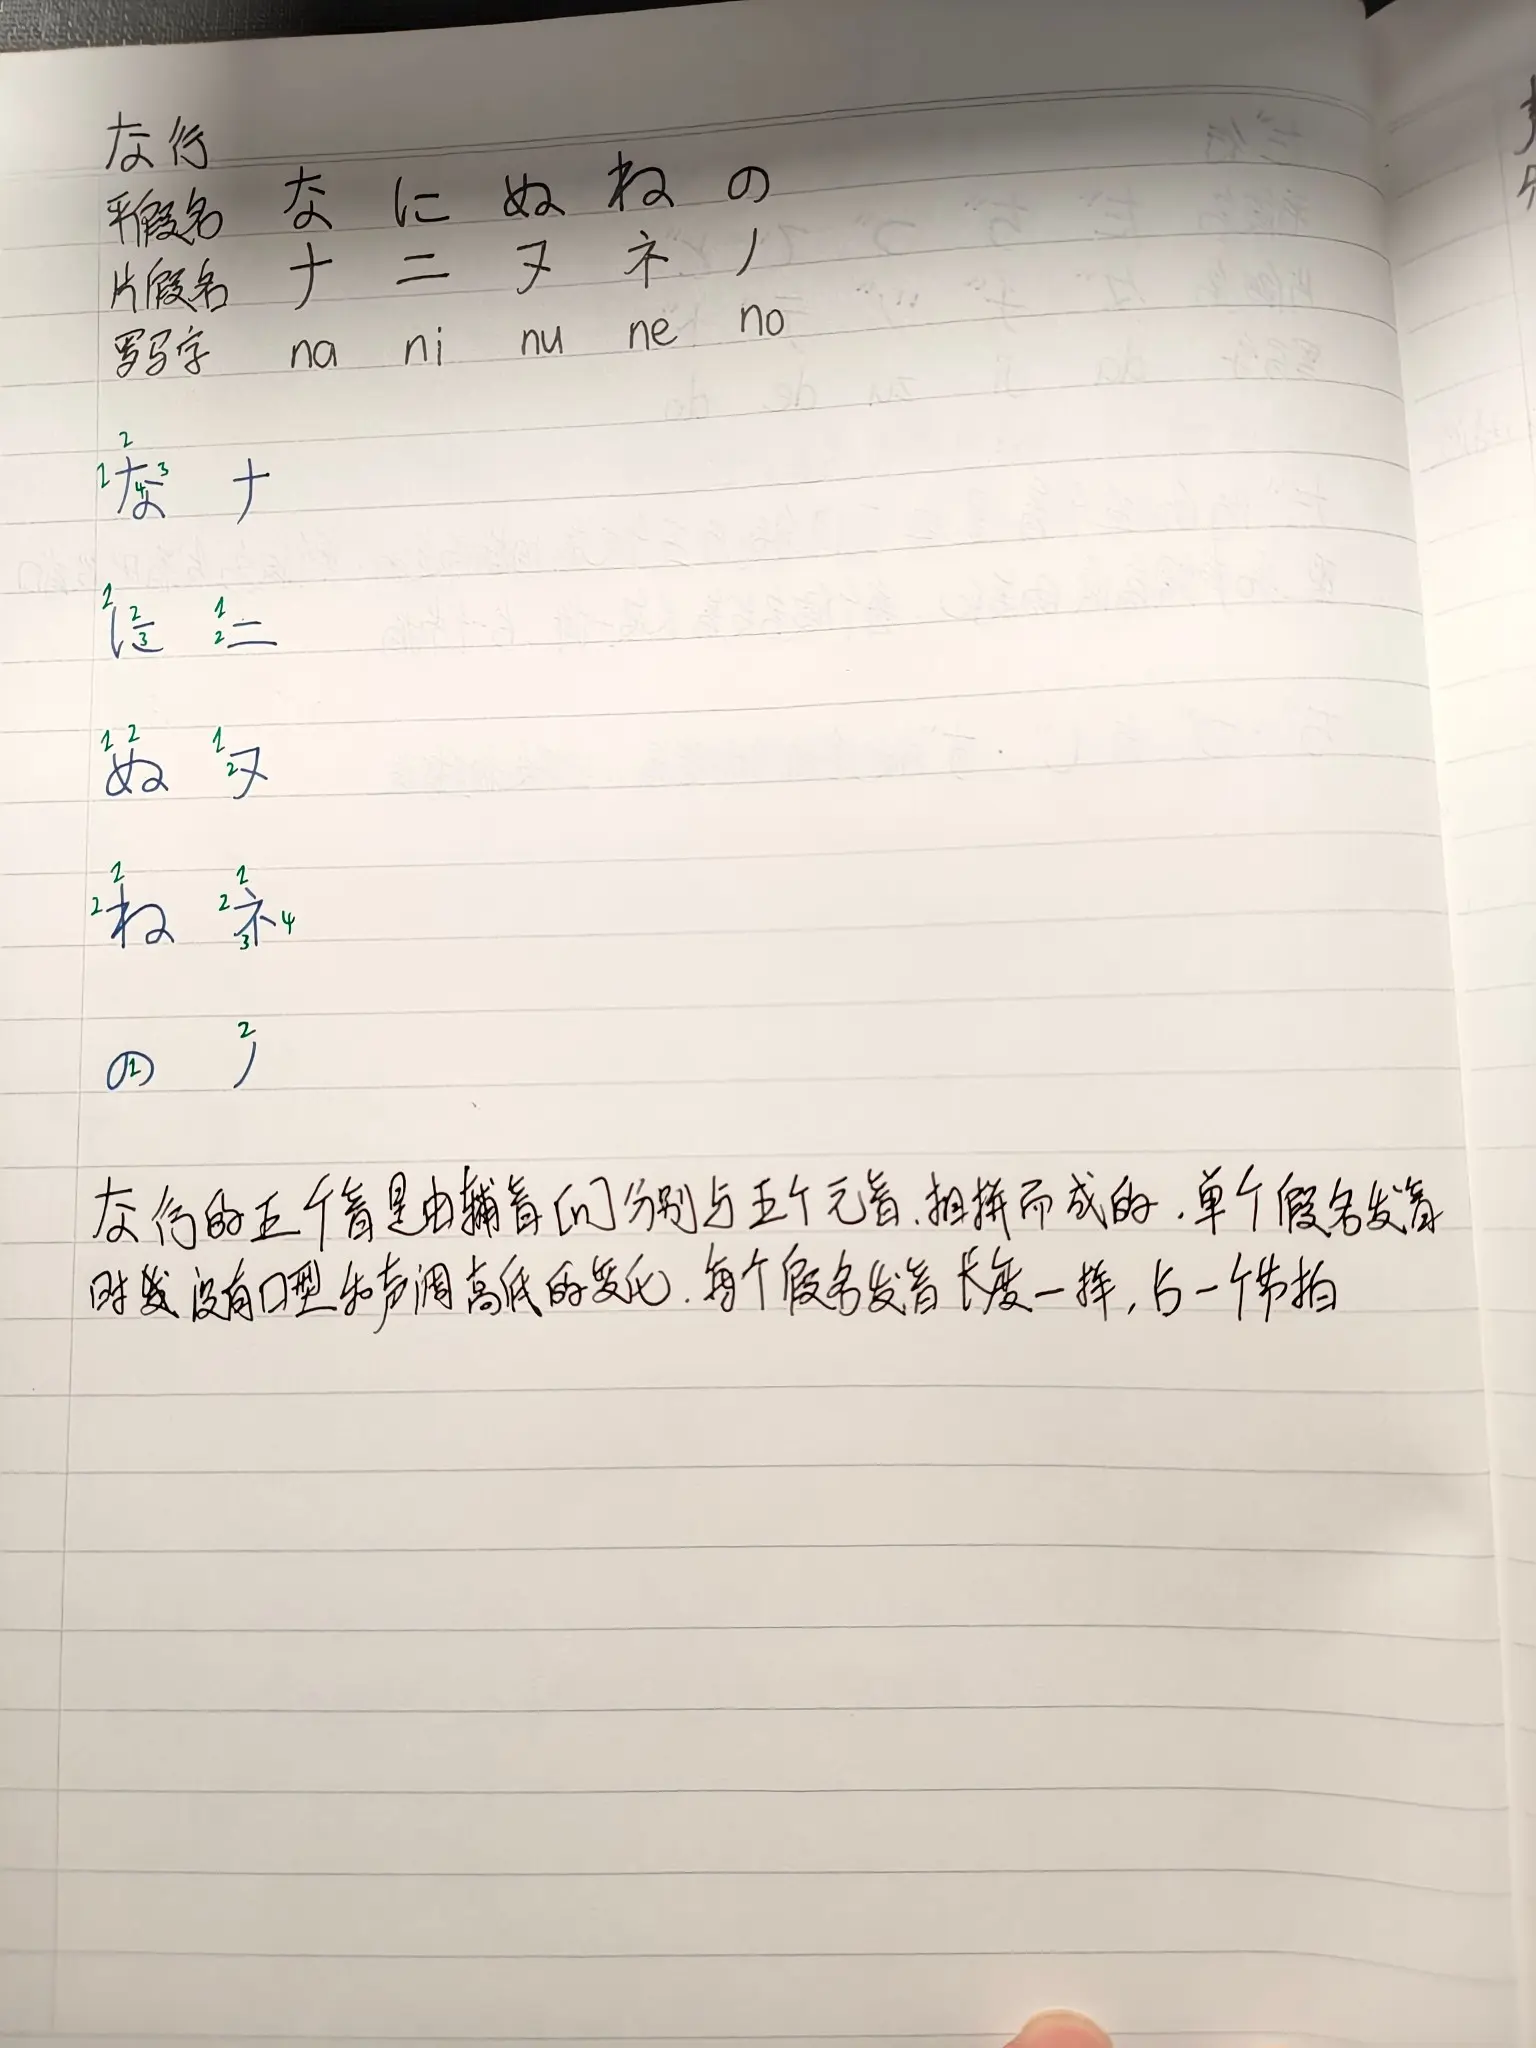 な行
平假名 な に ぬ ね の
片假名 ナ ニ ヌ ネ ノ
罗马字 na ni nu ne no
1 2 3 4 な ナ
1 2 3 に 1 2 ニ
1 2 ぬ 1 2 ヌ
2 2 ね 1 2 3 4 ネ
1 の 2 ノ
な行的五个音是由辅音[n]分别与五个元音、相拼而成的.单个假名发音
时没有口型和声调高低的变化.每个假名发音长度一样,占一个节拍